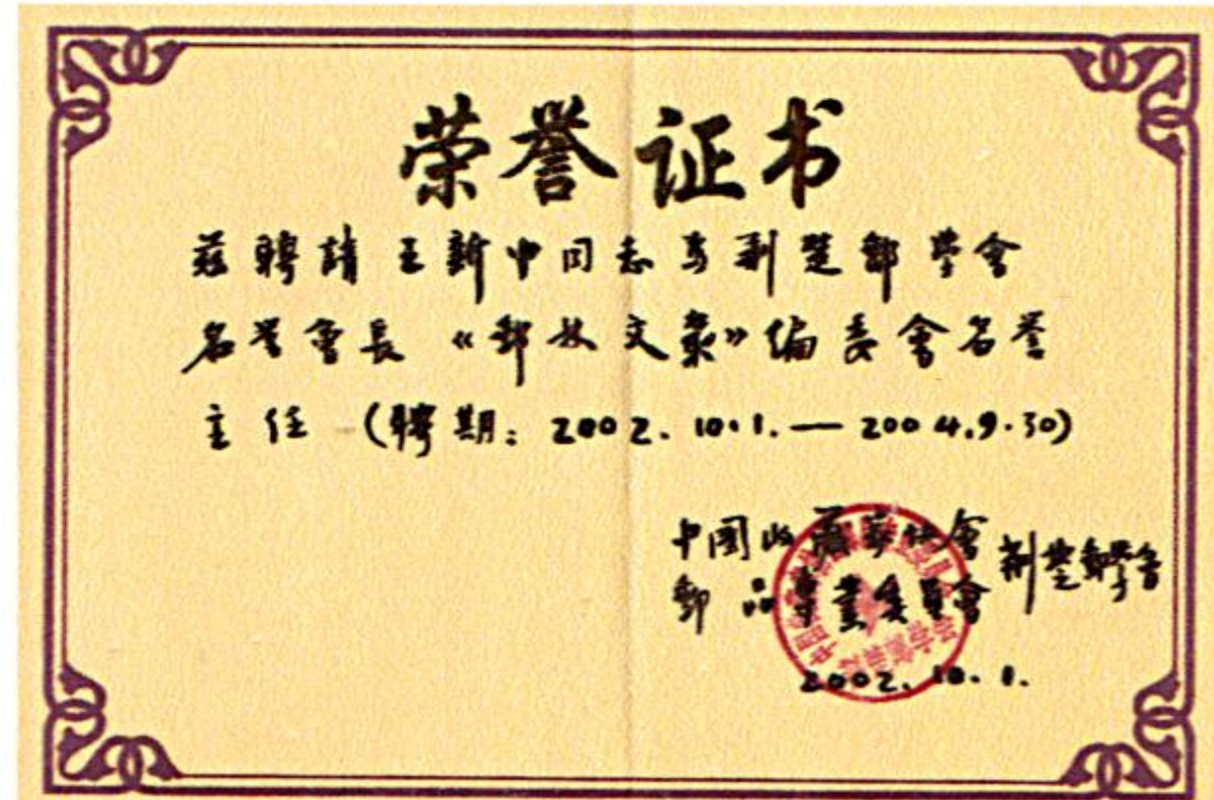 荣誉证书
兹聘請王新中同志为荆楚郵学會
名誉會長《郵林文彙》编委會名誉
主任（聘期：2002.10.1.—2004.9.30）
中国收藏家协會
郵品專業委員會
荆楚郵學會
2002.10.1.